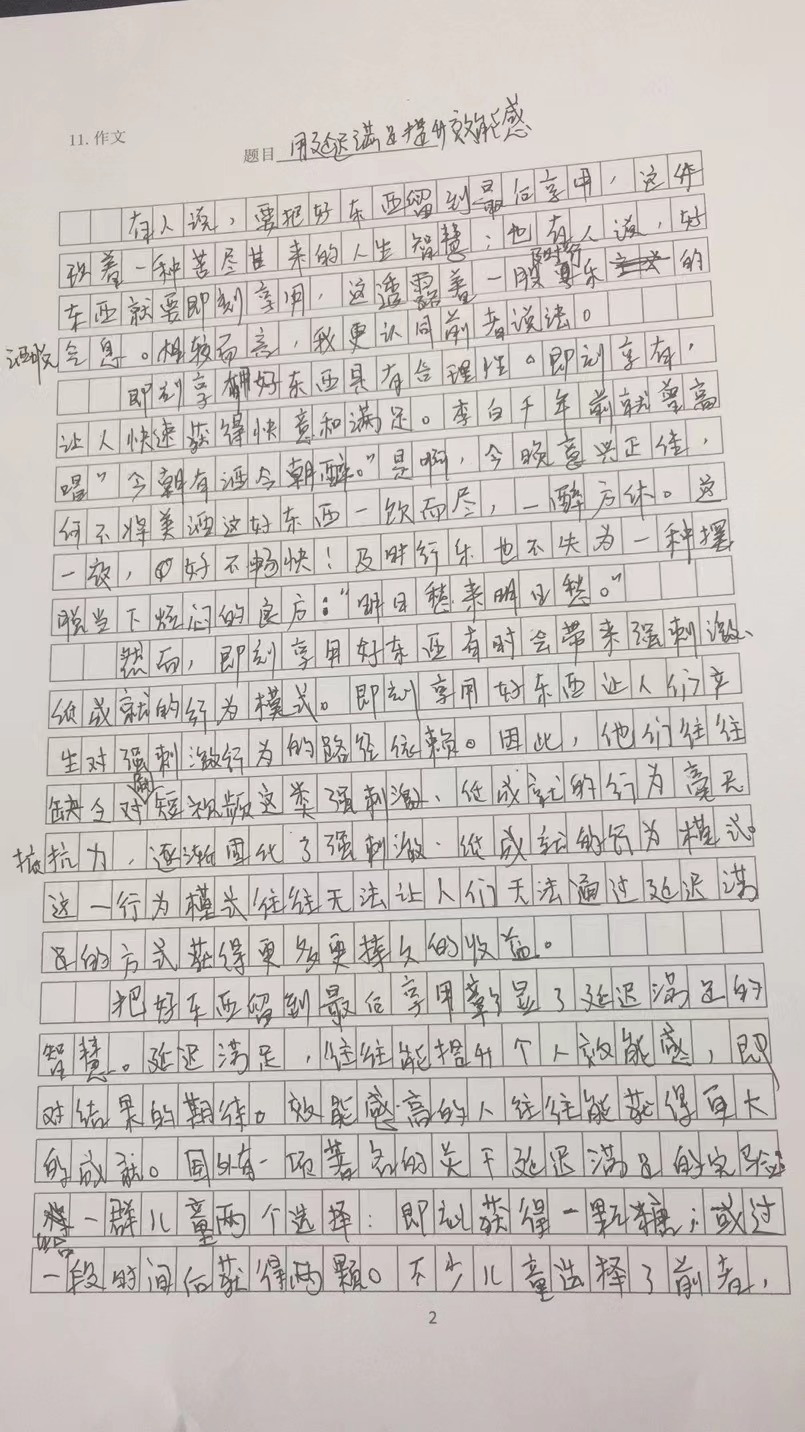 11. 作文
题目 用延迟满足提升效能感
有人说，要把好东西留到最后享用，这伴
张着一种苦尽甘来的人生智慧；也有人说，好
东西就要即刻享用，这透露着一股及时行乐的
活currently息。相较而言，我更认同前者说法。
即刻享用好东西具有合理性。即刻享有，
让人快速获得快意和满足。李白千年前就曾高
唱“今朝有酒今朝醉。”是啊，今晚意兴正佳，
何不将美酒这好东西一饮而尽，一醉方休。这
一放，好不畅快！及时行乐也不失为一种摆
脱当下烦闷的良方：“明日愁来明日愁。”
然而，即刻享用好东西有时会带来强刺激、
低成就的行为模式。即刻享用好东西让人们产
生对强刺激行为的路径依赖。因此，他们往往
缺乏对短视频这类强刺激、低成就的行为毫无
抵抗力，逐渐固化了强刺激·低成就的行为模式。
这一行为模式往往无法让人们无法通过延迟满
足的方式获得更多更持久的收益。
把好东西留到最后享用彰显了延迟满足的
智慧。延迟满足，往往能提升个人效能感，即
对结果的期待。效能感高的人往往能获得更大
的成就。国外有一项著名的关于延迟满足的实验
给一群儿童两个选择：即刻获得一颗糖；或过
一段时间后获得两颗。不少儿童选择了前者，
2